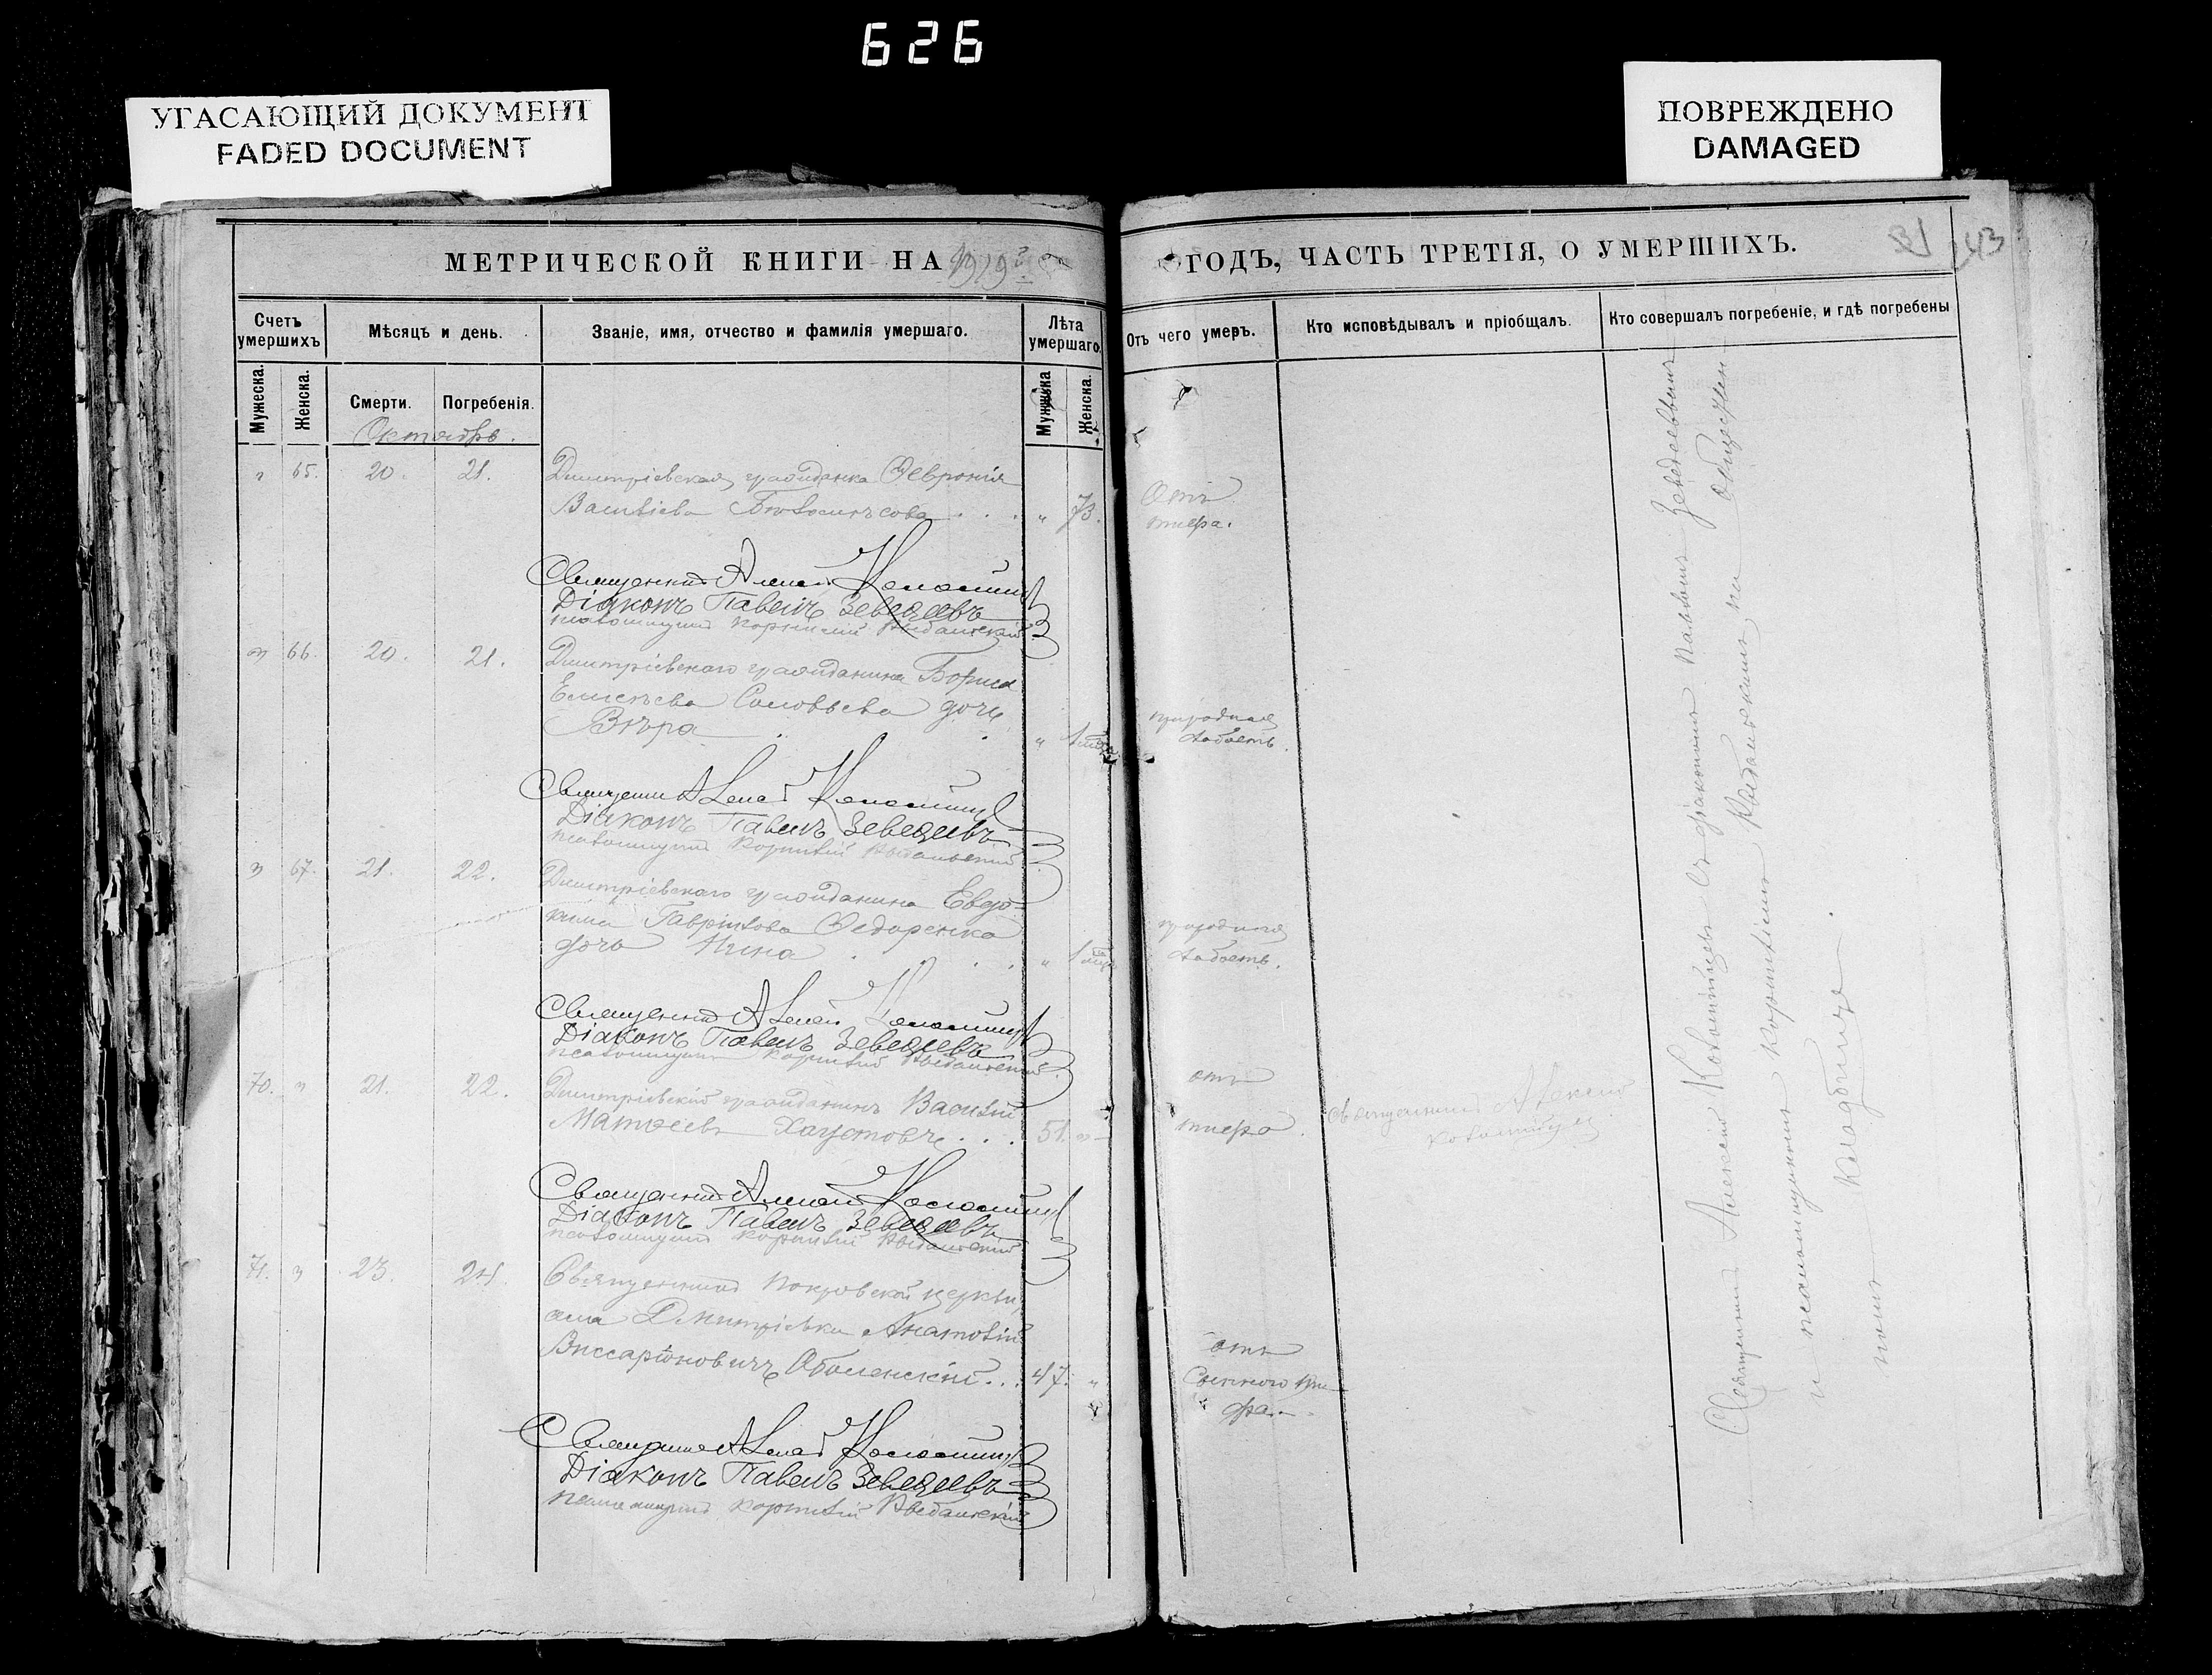 626
УГАСАЮЩИЙ ДОКУМЕНТ
FADED DOCUMENT
ПОВРЕЖДЕНО
DAMAGED
МЕТРИЧЕСКОЙ КНИГИ НА 1919 г
Счетъ умершихъ
Мѣсяцъ и день.
Званіе, имя, отчество и фамилія умершаго.
Лѣта умершаго.
Мужеска.
Женска.
Смерти.
Погребенія.
Мужска
Женска.
Октябрь.
65. 20. 21. Димитріевская гражданка Февронія
Васильева 73.
Священникъ Алексій Коломійц
Діаконъ Павелъ Зеведеевъ
псаломщикъ Корнилій
66. 20. 21. Димитріевскаго гражданина Бориса
Елисѣева Соловьева дочь
Вѣра 1
Священникъ Алексій Коломійц
Діаконъ Павелъ Зеведеевъ
псаломщикъ Корнилій
67. 21. 22. Димитріевскаго гражданина Евдо-
кима Гаврилова Федоренко
дочь Нина 1
Священникъ Алексій Коломійц
Діаконъ Павелъ Зеведеевъ
псаломщикъ Корнилій
70. 21. 22. Димитріевскій гражданинъ Василій
Матвеевъ Хаустовъ 51.
Священникъ Алексій Коломійц
Діаконъ Павелъ Зеведеевъ
псаломщикъ Корнилій
71. 23. 24. Священникъ Покровской церкви,
села Дмитріевки Анатолій
Виссаріоновичъ Оболенскій 47.
Священникъ Алексій Коломійц
Діаконъ Павелъ Зеведеевъ
псаломщикъ Корнилій
ГОДЪ, ЧАСТЬ ТРЕТІЯ, О УМЕРШИХЪ.
81 43
Отъ чего умеръ.
Кто исповѣдывалъ и пріобщалъ.
Кто совершалъ погребеніе, и гдѣ погребены
Отъ
тифа.
природная
слабость.
природная
слабость.
отъ
тифа.
священникъ Алексій
Коломійцевъ
отъ
Сыпного ти-
фа.
Священникъ Алексій Коломійцевъ съ діакономъ Павломъ Зеведеевымъ
и псаломщикомъ Корниліемъ на обществен-
номъ кладбище